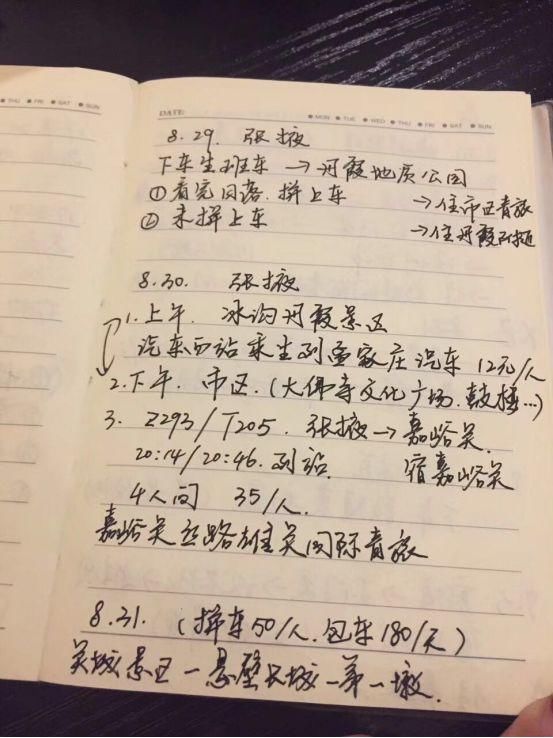 THU FRI SAT SUN
DATE: MON TUE WED THU FRI SAT SUN
8.29. 张掖
下车坐班车 → 丹霞地质公园
① 看完日落. 拼上车 → 住市区青旅
② 未拼上车 → 住丹霞附近
8.30. 张掖
1. 上午. 冰沟丹霞景区
汽车西站乘坐到 家庄汽车 12元/人
2. 下午. 市区. (大佛寺文化广场. 鼓楼…)
3. Z293/T205. 张掖 → 嘉峪关.
20:14/20:46. 到站. 宿嘉峪关
4人间 35/人.
嘉峪关丝路雄关国际青旅
8.31. (拼车50/人. 包车180/天)
关城景区 - 悬壁长城 - 第一墩.